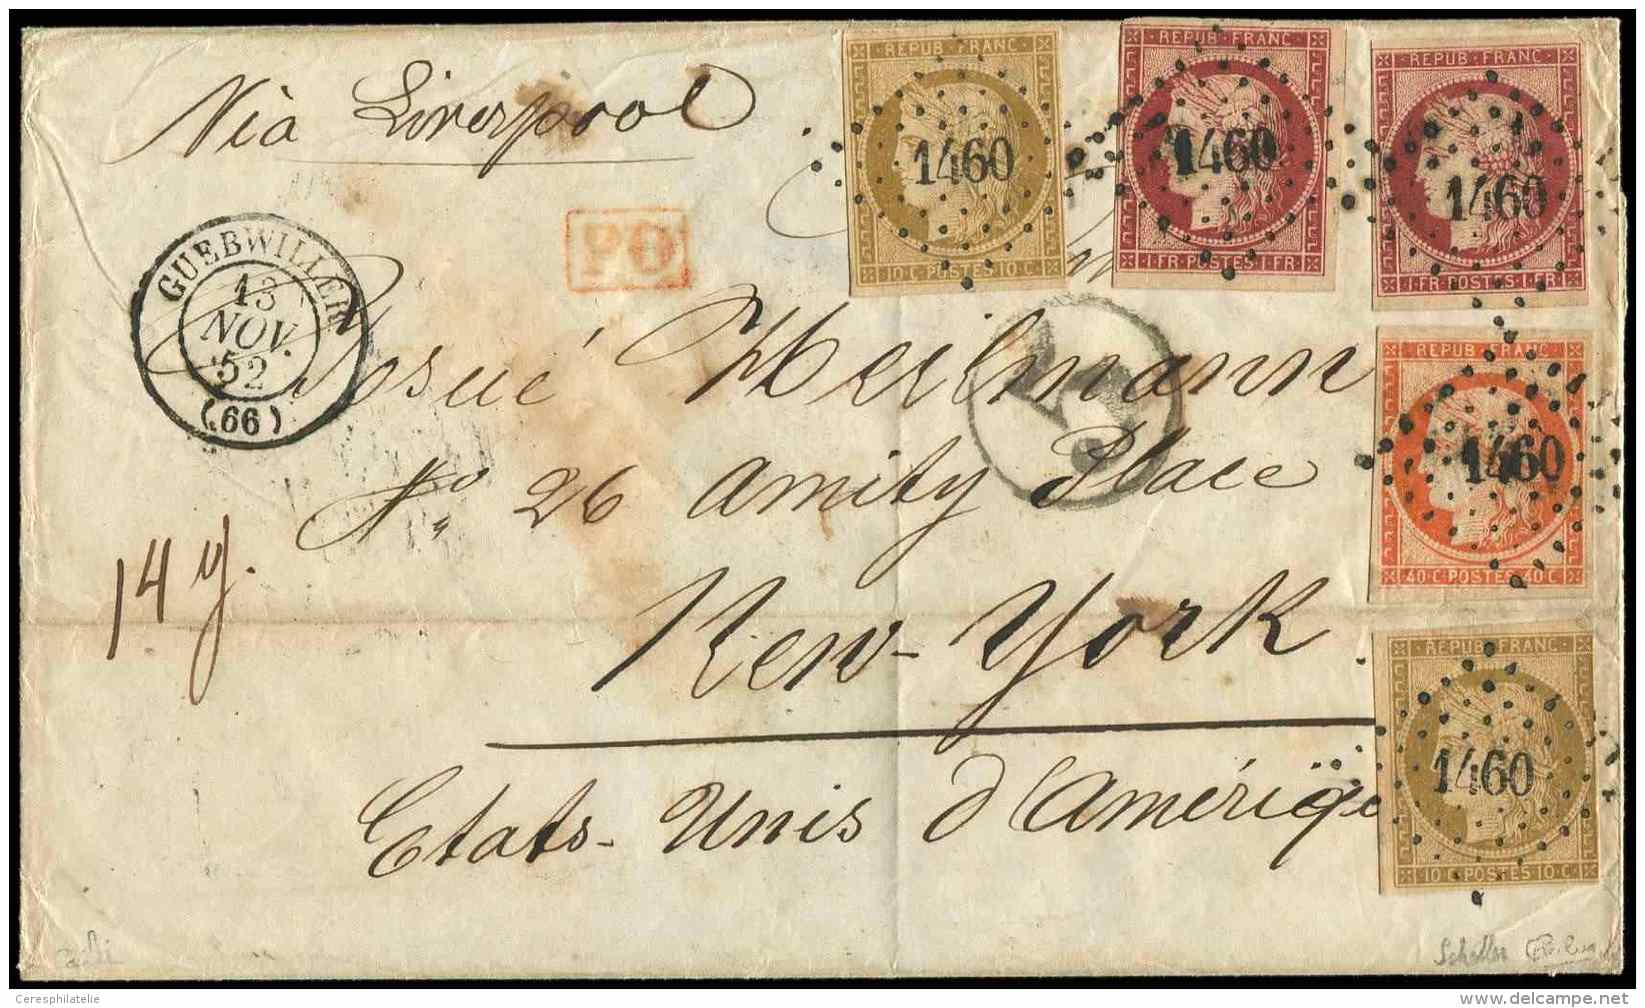 Via Liverpool
PO
GUEBWILLER
13
NOV.
52
(66)
REPUB. FRANC
1460
10 C. POSTES 10 C.
REPUB. FRANC
1460
1 FR. POSTES 1 FR.
REPUB. FRANC
1460
1 FR. POSTES 1 FR.
Josué Heilmann
REPUB. FRANC
1460
40 C. POSTES 40 C.
No 26 Amity Place
14 g.
New-York.
REPUB. FRANC
1460
10 C. POSTES 10 C.
Etats-Unis d'Amériqe
Scheller
Ceresphilatelie
www.delcampe.net